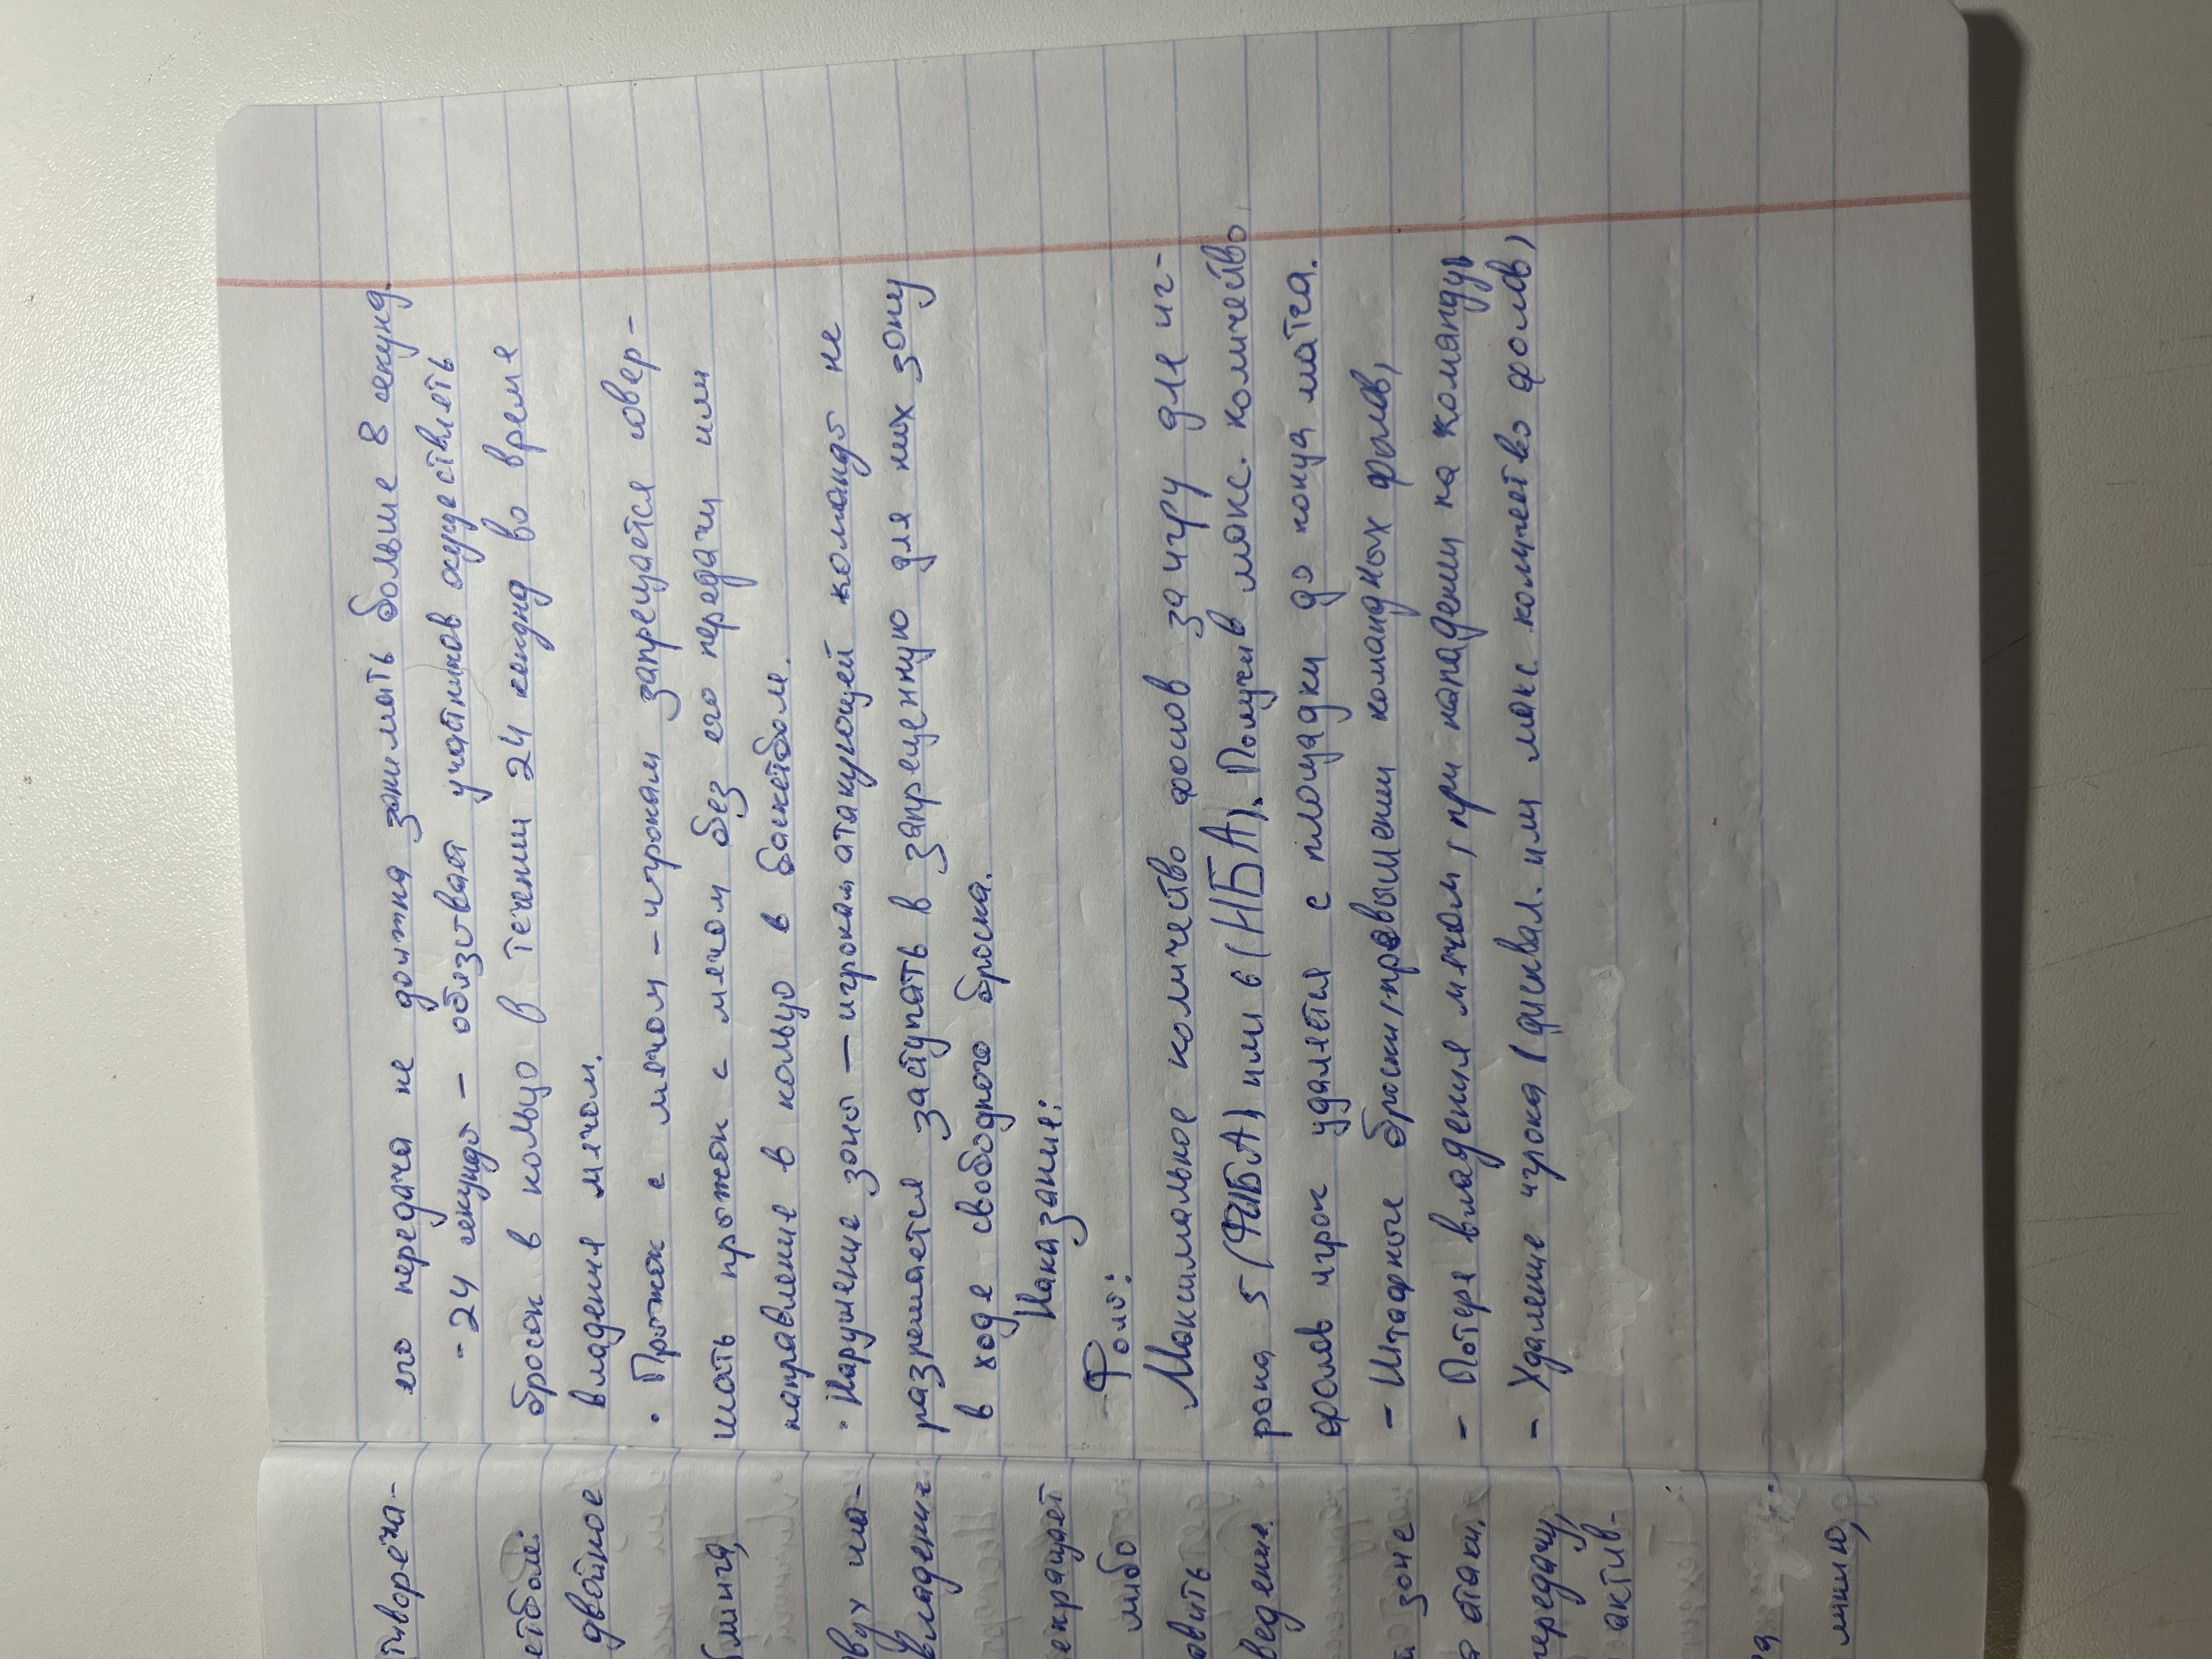 его передача не должна занимать больше 8 секунд.
- 24 секунды - обязывает участников осуществлять
бросок в кольцо в течении 24 секунд во время
владения мячом.
• Прыжок с мячом - игрокам запрещается совер-
шать прыжок с мячом без его передачи или
направление в кольцо в баскетболе.
• Нарушение зоны - игрокам атакующей команды не
разрешается заступать в запрещенную для них зону
в ходе свободного броска.
Наказание:
- Фолы:
Максимальное количество фолов за игру для иг-
рока 5 (ФИБА) или 6 (НБА). Получив макс. количество
фолов игрок удаляется с площадки до конца матча.
- Штафные броски, превышении командных фолов,
- Потеря владения мячом, при нападении на команду
- Удаление игрока (дисквал. или макс количество фолов)
тивореча-
етболе:
двойное
блинга,
вух ша-
владени
екращает
либо
авить
ведение.
й зоне
атаки.
передачу,
актив-
линию,